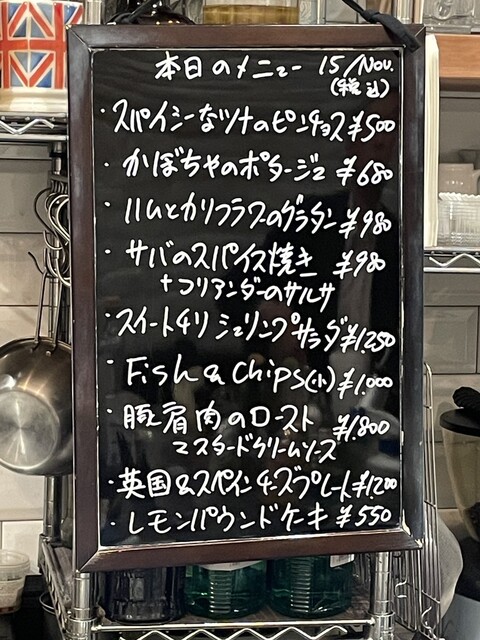 本日のメニュー 15/Nov.
(税込)
・スパイシーなツナのピンチョス ¥500
・かぼちゃのポタージュ ¥680
・ハムとカリフラワのグラタン ¥980
・サバのスパイス焼き ¥980
+コリアンダーのサルサ
・スイートチリ シュリンプサラダ ¥1,250
・Fish & Chips(小) ¥1,000
・豚肩肉のロースト ¥1,800
マスタードクリームソース
・英国&スペインチーズプレート ¥1,200
・レモンパウンドケーキ ¥550